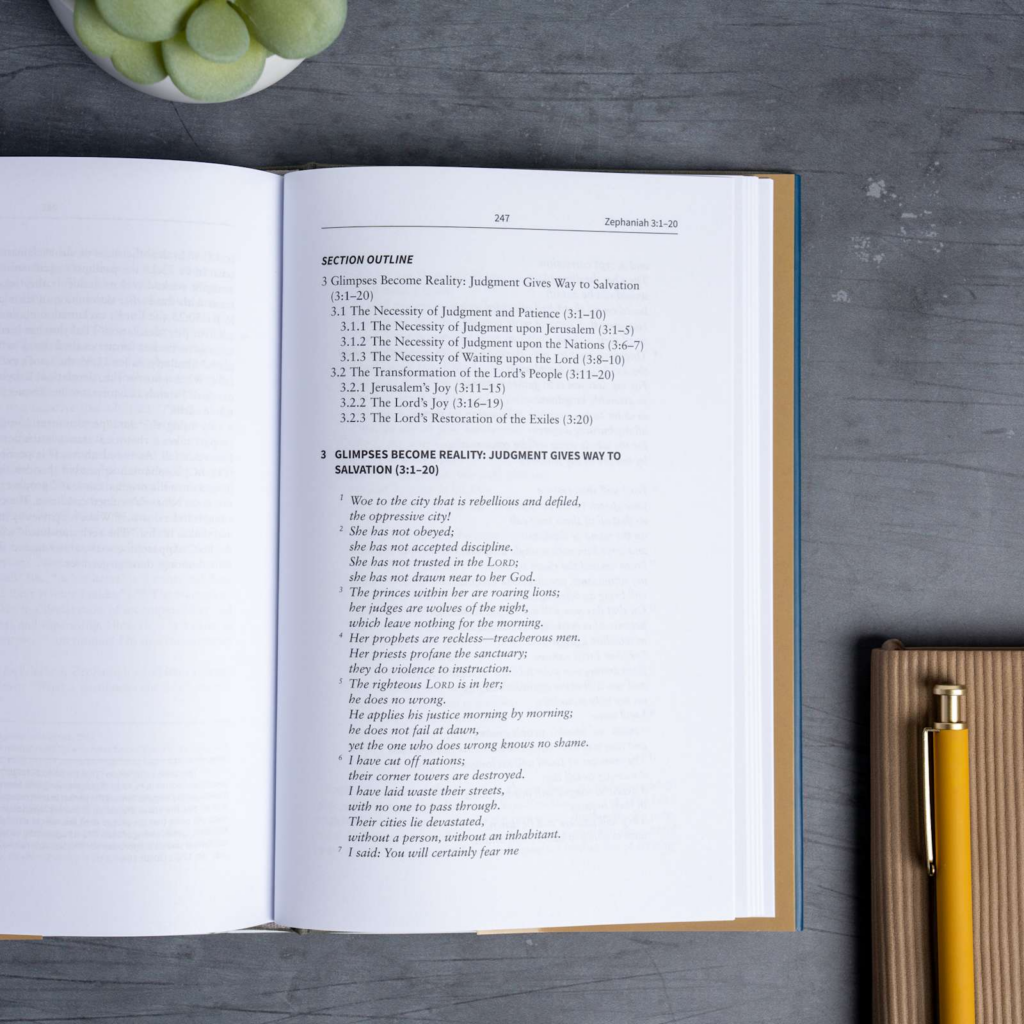 247 Zephaniah 3:1–20
SECTION OUTLINE
3 Glimpses Become Reality: Judgment Gives Way to Salvation
(3:1–20)
3.1 The Necessity of Judgment and Patience (3:1–10)
3.1.1 The Necessity of Judgment upon Jerusalem (3:1–5)
3.1.2 The Necessity of Judgment upon the Nations (3:6–7)
3.1.3 The Necessity of Waiting upon the Lord (3:8–10)
3.2 The Transformation of the Lord’s People (3:11–20)
3.2.1 Jerusalem’s Joy (3:11–15)
3.2.2 The Lord’s Joy (3:16–19)
3.2.3 The Lord’s Restoration of the Exiles (3:20)
3 GLIMPSES BECOME REALITY: JUDGMENT GIVES WAY TO
SALVATION (3:1–20)
1 Woe to the city that is rebellious and defiled,
the oppressive city!
2 She has not obeyed;
she has not accepted discipline.
She has not trusted in the LORD;
she has not drawn near to her God.
3 The princes within her are roaring lions;
her judges are wolves of the night,
which leave nothing for the morning.
4 Her prophets are reckless—treacherous men.
Her priests profane the sanctuary;
they do violence to instruction.
5 The righteous LORD is in her;
he does no wrong.
He applies his justice morning by morning;
he does not fail at dawn,
yet the one who does wrong knows no shame.
6 I have cut off nations;
their corner towers are destroyed.
I have laid waste their streets,
with no one to pass through.
Their cities lie devastated,
without a person, without an inhabitant.
7 I said: You will certainly fear me